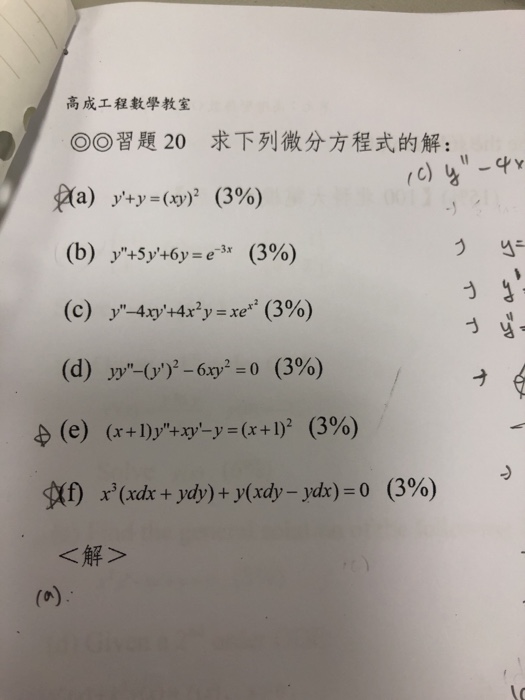 高成工程數學教室
◎◎習題 20 求下列微分方程式的解:
(c) y"-4x
(a) y'+y=(xy)² (3%)
(b) y"+5y'+6y=e⁻³ˣ (3%)
y=
(c) y"-4xy'+4x²y=xeˣ² (3%)
y'
y"
(d) yy"-(y')²-6xy²=0 (3%)
(e) (x+1)y"+xy'-y=(x+1)² (3%)
(f) x³(xdx+ydy)+y(xdy-ydx)=0 (3%)
<解>
(a):